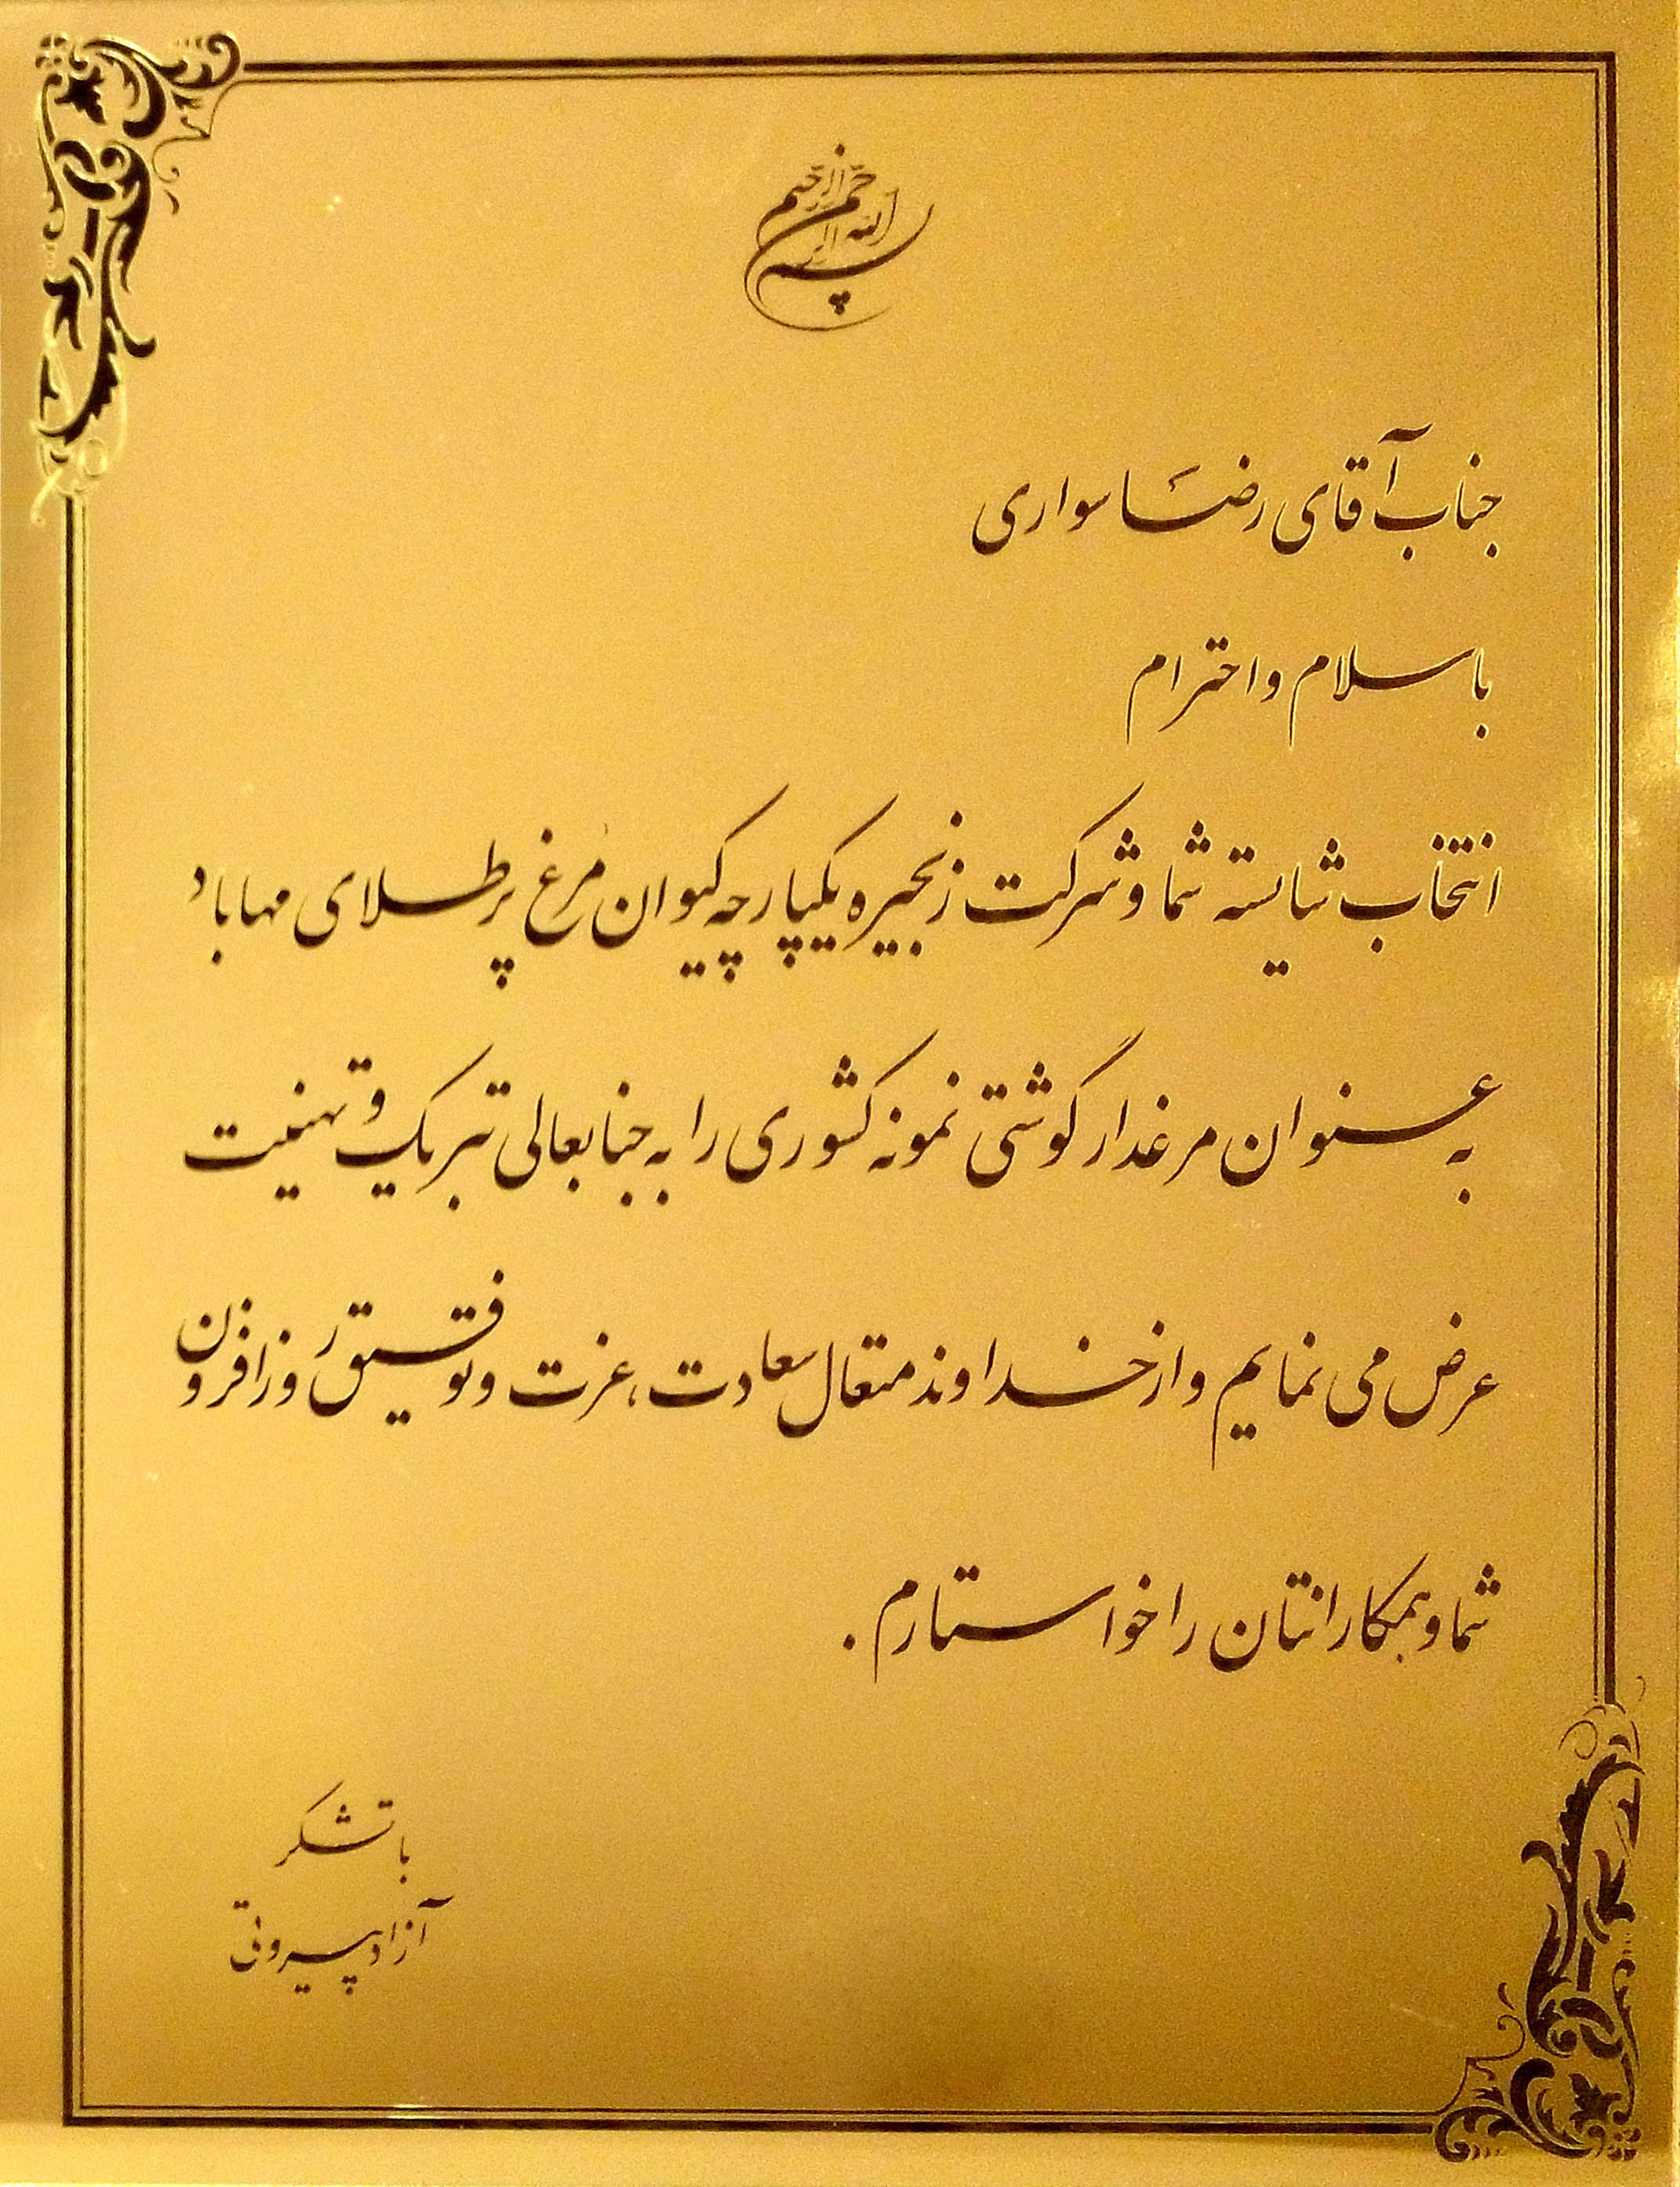 بسم الله الرحمن الرحیم
جناب آقای رضا سواری
با سلام و احترام
انتخاب شایسته شما و شرکت زنجیره یکپارچه کیوان مرغ پرطلای مهاباد
به عنوان مرغدار گوشتی نمونه کشوری را به جنابعالی تبریک و تهنیت
عرض می نمایم و از خداوند متعال سعادت، عزت و توفیق روز افزون
شما و همکارانتان را خواستارم .
با تشکر
آزاد پیروتی